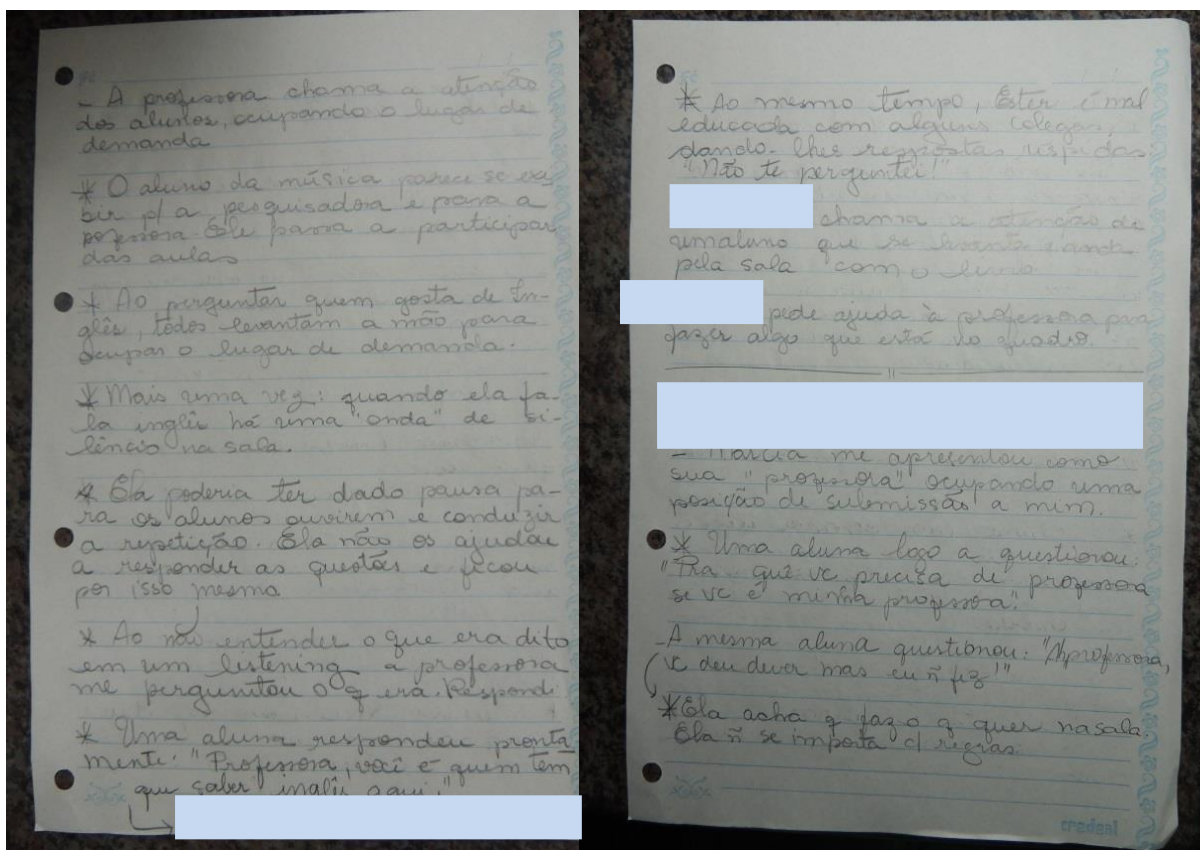 - A professora chama a atenção
dos alunos, ocupando o lugar de
demanda
* O aluno da música parece se exi-
bir p/ a pesquisadora e para a
professora. Ele passa a participar
das aulas
* Ao perguntar quem gosta de In-
glês, todos levantam a mão para
ocupar o lugar de demanda.
* Mais uma vez: quando ela fa-
la inglês há uma "onda" de si-
lêncio na sala.
* Ela poderia ter dado pausa pa-
ra os alunos ouvirem e conduzir
a repetição. Ela não os ajudou
a responder as questões e ficou
por isso mesmo
* Ao não entender o que era dito
em um listening a professora
me perguntou o q era. Respondi
* Uma aluna respondeu pronta
mente: "Professora, você é quem tem
que saber inglês aqui."
* Ao mesmo tempo, Ester é mal
educada com alguns colegas,
dando-lhes respostas ríspidas
"Não te perguntei!"
chama a atenção de
um aluno que se levanta e anda
pela sala com o
pede ajuda à professora para
fazer algo que está no quadro.
- Márcia me apresentou como
sua "professora" ocupando uma
posição de submissão a mim.
* Uma aluna logo a questionou:
"Pra quê vc precisa de professora
se vc é minha professora".
- A mesma aluna questionou: "Ah professora,
vc deu dever mas eu ñ fiz!"
* Ela acha q faz o q quer na sala
Ela ñ se importa c/ regras.
credeal